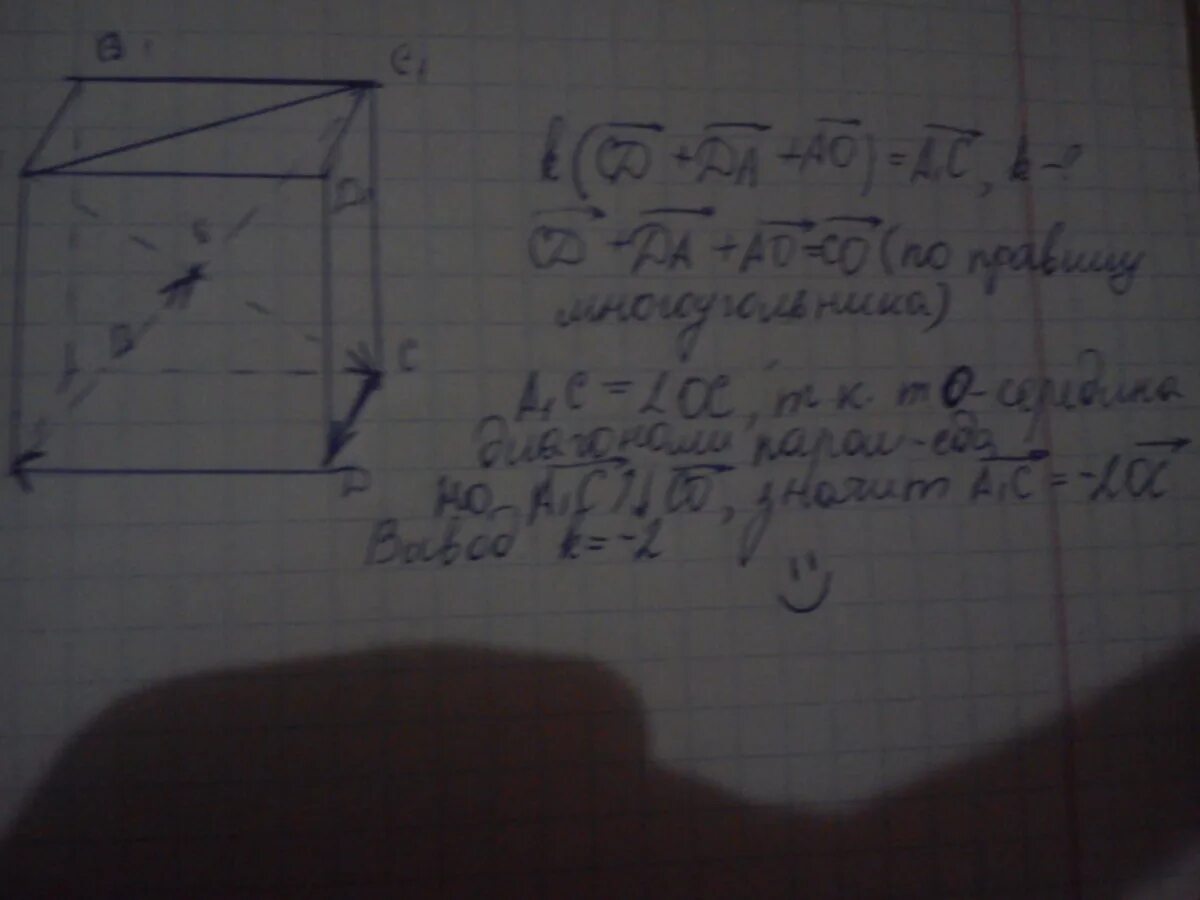 B1
C1
D1
B
C
D
k(CD + DA + AO) = A₁C, k - ?
CD + DA + AO = CO (по правилу
многоугольника)
A₁C = 2OC, т к. т O - середина
диагонали парал-еда,
но A₁C ↑↓ CO, значит A₁C = -2OC
Вывод k = -2